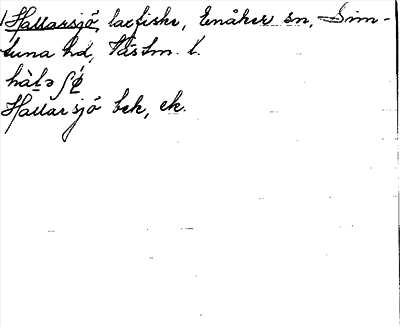 Hallarsjö, laxfiske, Enåker sn, Sim-
tuna hd, Västm. l.
hàḷə ʃǿ
Hallarsjö bek, ek.